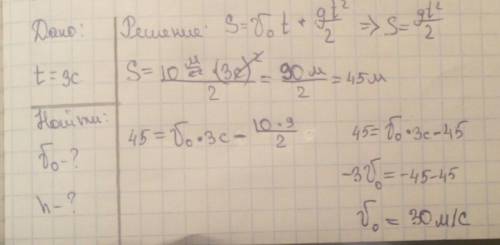 Дано:
t=3с
Найти:
v₀-?
h-?
Решение: S=v₀t+gt²/2 => S=gt²/2
S=10 м/с² · (3с)²/2=90м/2=45м
45=v₀·3с-10·9/2
45=v₀·3с-45
-3v₀=-45-45
v₀=30м/с